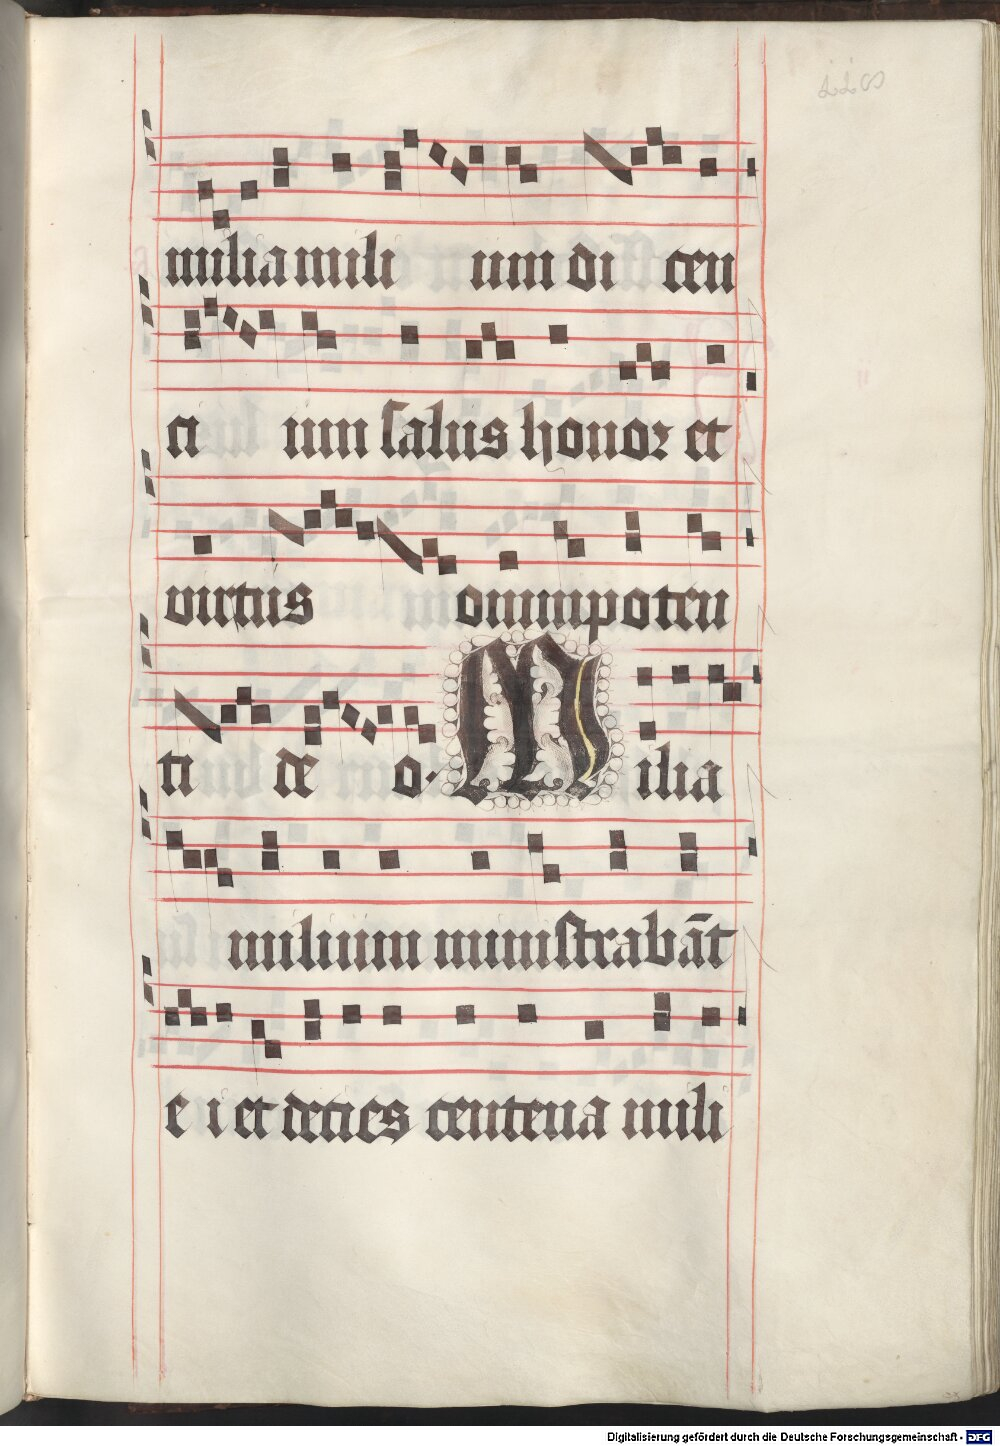 milia mili um di cen
ci um salus honor et
virtus omnipoten
ti deo. Milia
milium ministrabāt
e i et decies centena mili
Digitalisierung gefördert durch die Deutsche Forschungsgemeinschaft - DFG